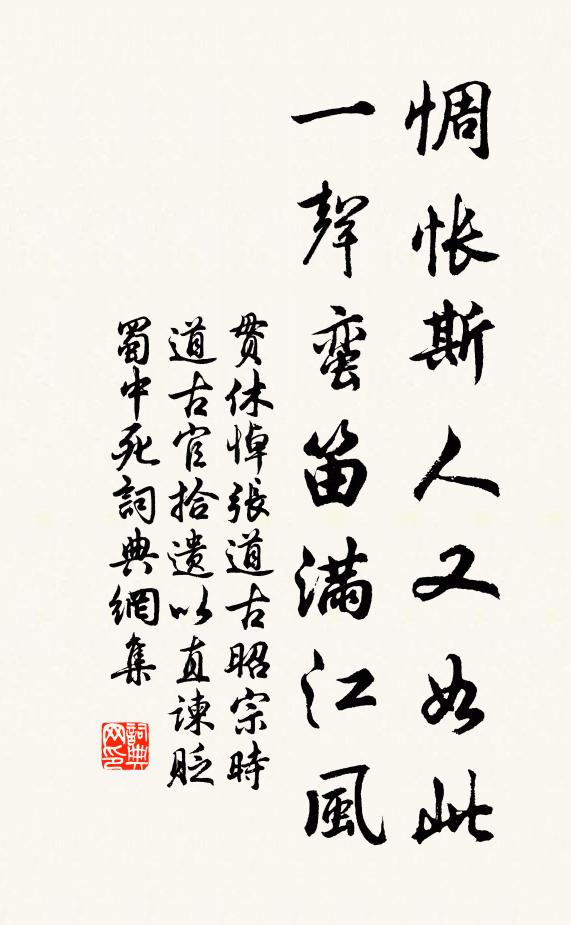 惆悵斯人又如此
一聲蠻笛滿江風
贯休悼張道古昭宗時
道古官拾遺以直諫貶
蜀中死詞典網集
詞典网印